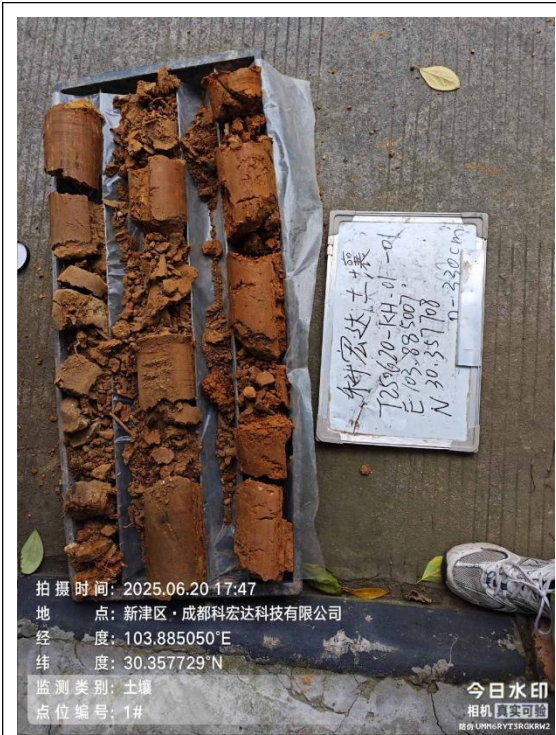 科宏达土壤
T250620-KH-01-01
E 103.885007
N 30.357708
0-330cm
拍摄时间: 2025.06.20 17:47
地 点: 新津区·成都科宏达科技有限公司
经 度: 103.885050°E
纬 度: 30.357729°N
监测类别: 土壤
点位编号: 1#
今日水印
相机 真实可验
防伪 UMM6RYT3RGKRW2